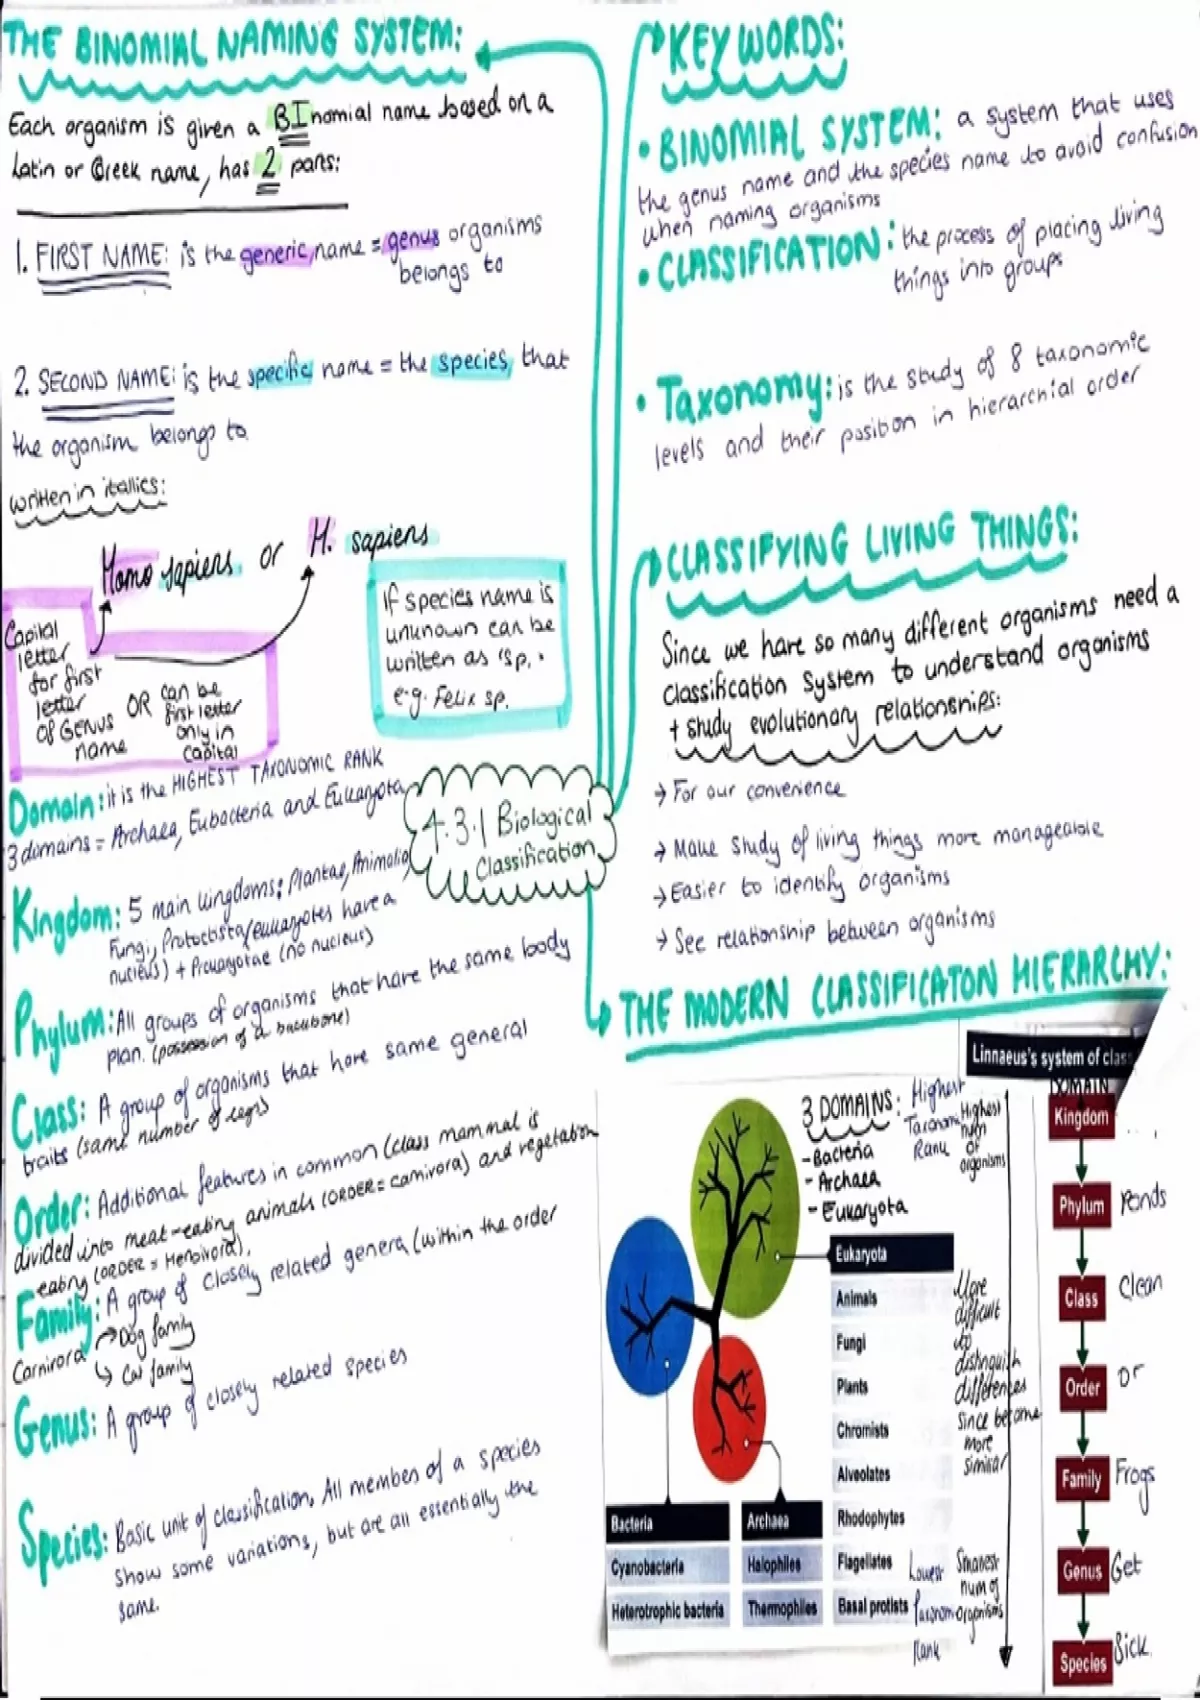 THE BINOMIAL NAMING SYSTEM:
Each organism is given a BInomial name based on a
Latin or Greek name, has 2 parts:
1. FIRST NAME: is the generic name = genus organisms
belongs to
2. SECOND NAME: is the specific name = the species, that
the organism belongs to
written in itallics:
Homo sapiens or H. sapiens
Capital
letter
for first
letter
of GENUS
name
OR can be
first letter
only in
capital
If species name is
unknown can be
written as 'sp.'
e.g. Felix sp.
Domain: it is the HIGHEST TAXONOMIC RANK
3 domains = Archaea, Eubacteria and Eukaryota
Kingdom: 5 main kingdoms: Plantae, Animalia
Fungi, Protoctista (eukaryotes have a
nucleus) + Prokaryotae (no nucleus)
Phylum: All groups of organisms that have the same body
plan. (possession of a backbone)
Class: A group of organisms that have same general
traits (same number of legs)
Order: Additional features in common (class mammal is
divided into meat-eating animals (ORDER = carnivora) and vegetation
eating (ORDER = Herbivora),
Family: A group of closely related genera (within the order
Carnivora → Dog family
↳ Cat family
Genus: A group of closely related species
Species: Basic unit of classification. All members of a species
show some variations, but are all essentially the
same.
4.3.1 Biological
Classification
KEY WORDS:
• BINOMIAL SYSTEM: a system that uses
the genus name and the species name to avoid confusion
when naming organisms
• CLASSIFICATION: the process of placing living
things into groups
• Taxonomy: is the study of 8 taxonomic
levels and their position in hierarchial order
CLASSIFYING LIVING THINGS:
Since we have so many different organisms need a
classification system to understand organisms
+ study evolutionary relationships:
→ For our convenience
→ Make study of living things more manageable
→ Easier to identify organisms
→ See relationship between organisms
THE MODERN CLASSIFICATON HIERARCHY:
3 DOMAINS:
- Bacteria
- Archaea
- Eukaryota
Highest
Taxonomi
Rank
Highest
num
of
organisms
Eukaryota
Animals
Fungi
Plants
Chromists
Alveolates
Rhodophytes
Flagellates
Basal protists
Bacteria
Cyanobacteria
Heterotrophic bacteria
Archaea
Halophiles
Thermophiles
More
difficult
to
distinguish
differences
since become
more
similar
Lowest
Taxonomi
Rank
Smallest
num of
organisms
Linnaeus's system of clas
DOMAIN
Kingdom
Phylum Ponds
Class Clean
Order Or
Family Frogs
Genus Get
Species Sick.